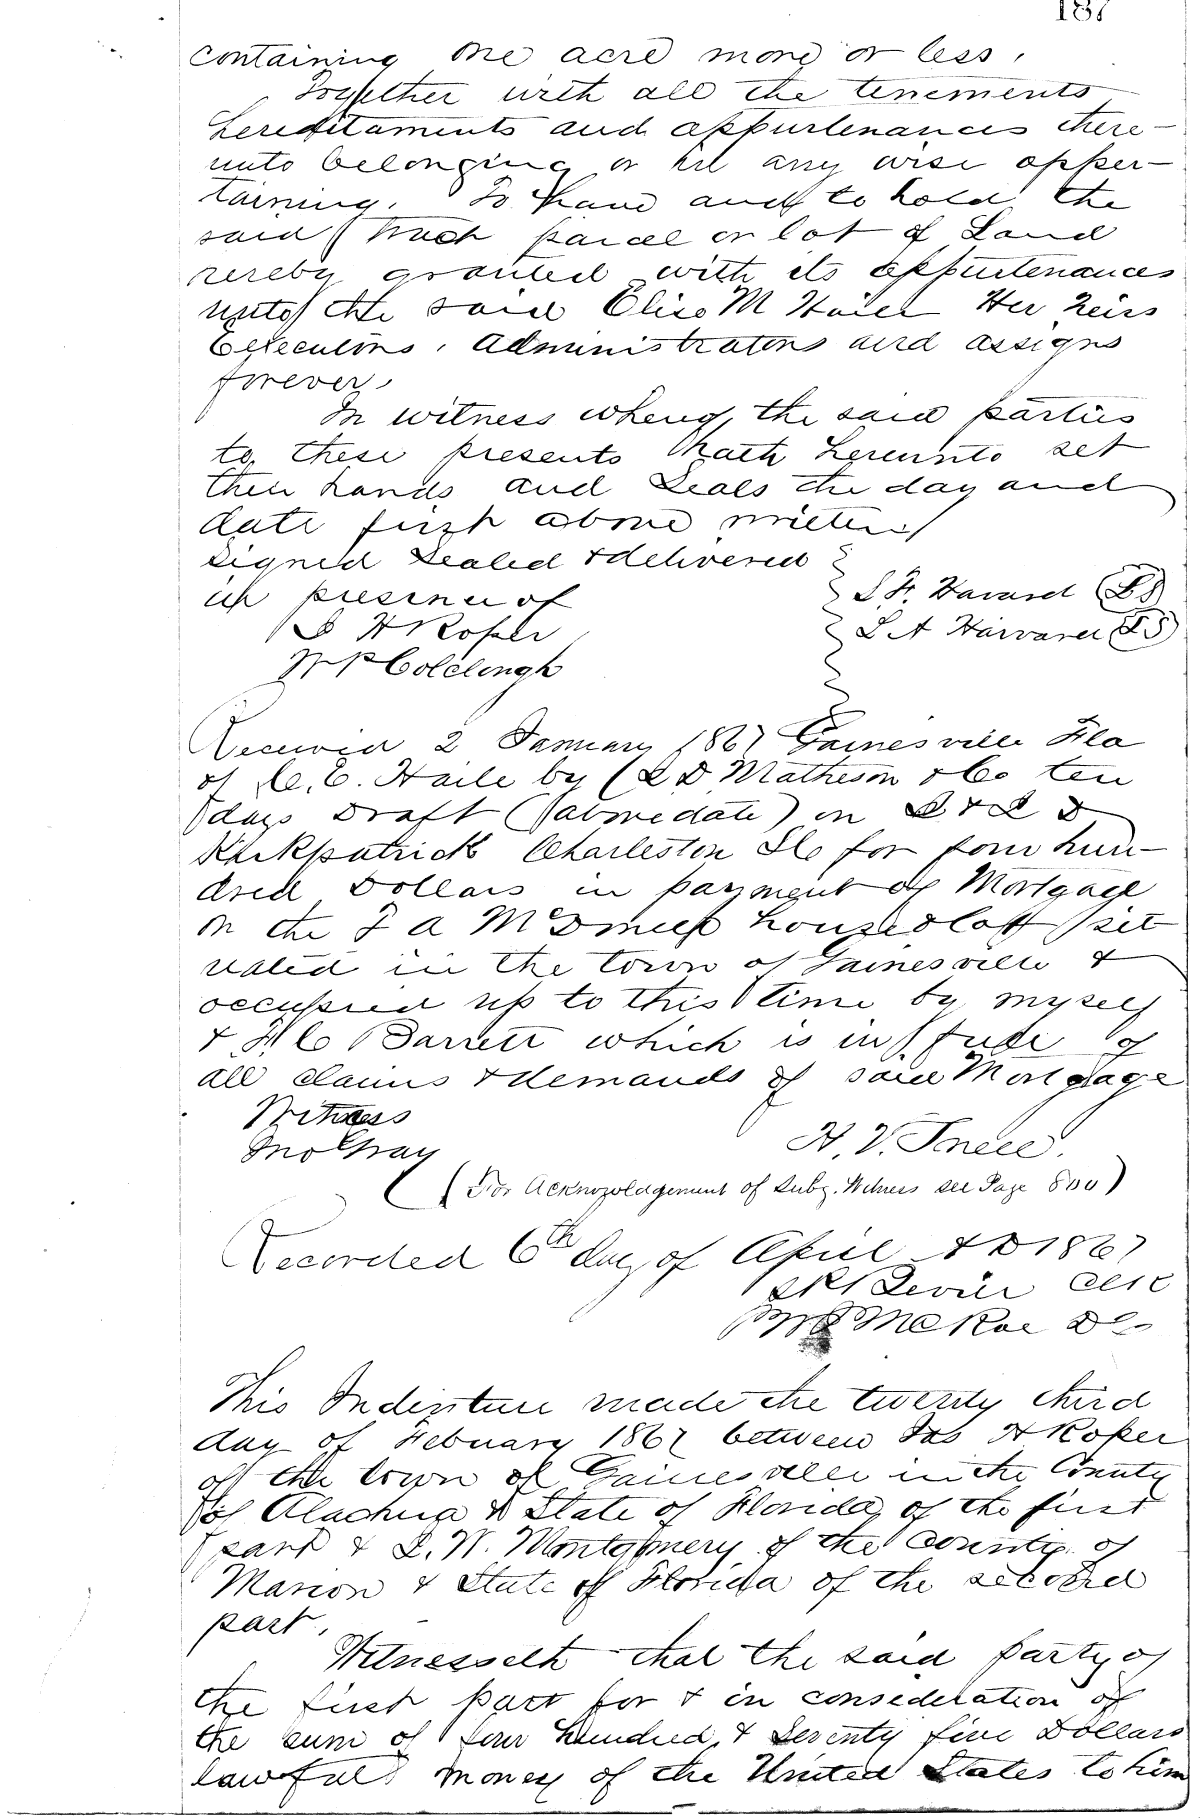 187
containing one acre more or less.
Together with all the tenements
hereditaments and appurtenances there-
unto belonging or in any wise apper-
taining. To have and to hold the
said tract parcel or lot of Land
hereby granted with its appurtenances
unto the said Elisa M Haile Her heirs
Executors, administrators and assigns
forever.
In witness whereof, the said parties
to these presents hath hereunto set
their hands and Seals the day and
date first above written
Signed Sealed & delivered
in presence of
S. F. Havard (LS)
J H Roper
L A Harvard (LS)
W P Coldlough
Received 2 January 1867 Gainesville Fla
of C. E. Haile by (L D Matheson & Co ten
days Draft (above date) on &
Kirkpatrick Charleston SC for four hun-
dred Dollars in payment of Mortgage
on the house & lot sit
uated in the town of Gainesville &
occupied up to this time by myself
& H C Barrett which is in full of
all claims & demands of said Mortgage
Witness
Jno Gray
H. V. Snell.
(For Acknowledgement of Subg. Witness see Page 800)
Recorded 6th day of April A D 1867
Clk
McRae DC
This Indenture made the twenty third
day of Febuary 1867 between Jas H Roper
of the town of Gainesville in the County
of Alachua & State of Florida of the first
part & L. W. Montgomery of the County of
Marion & State of Florida of the second
part.
Witnesseth that the said party of
the first part for & in consideration of
the sum of four hundred & Seventy five Dollars
lawful money of the United States to him